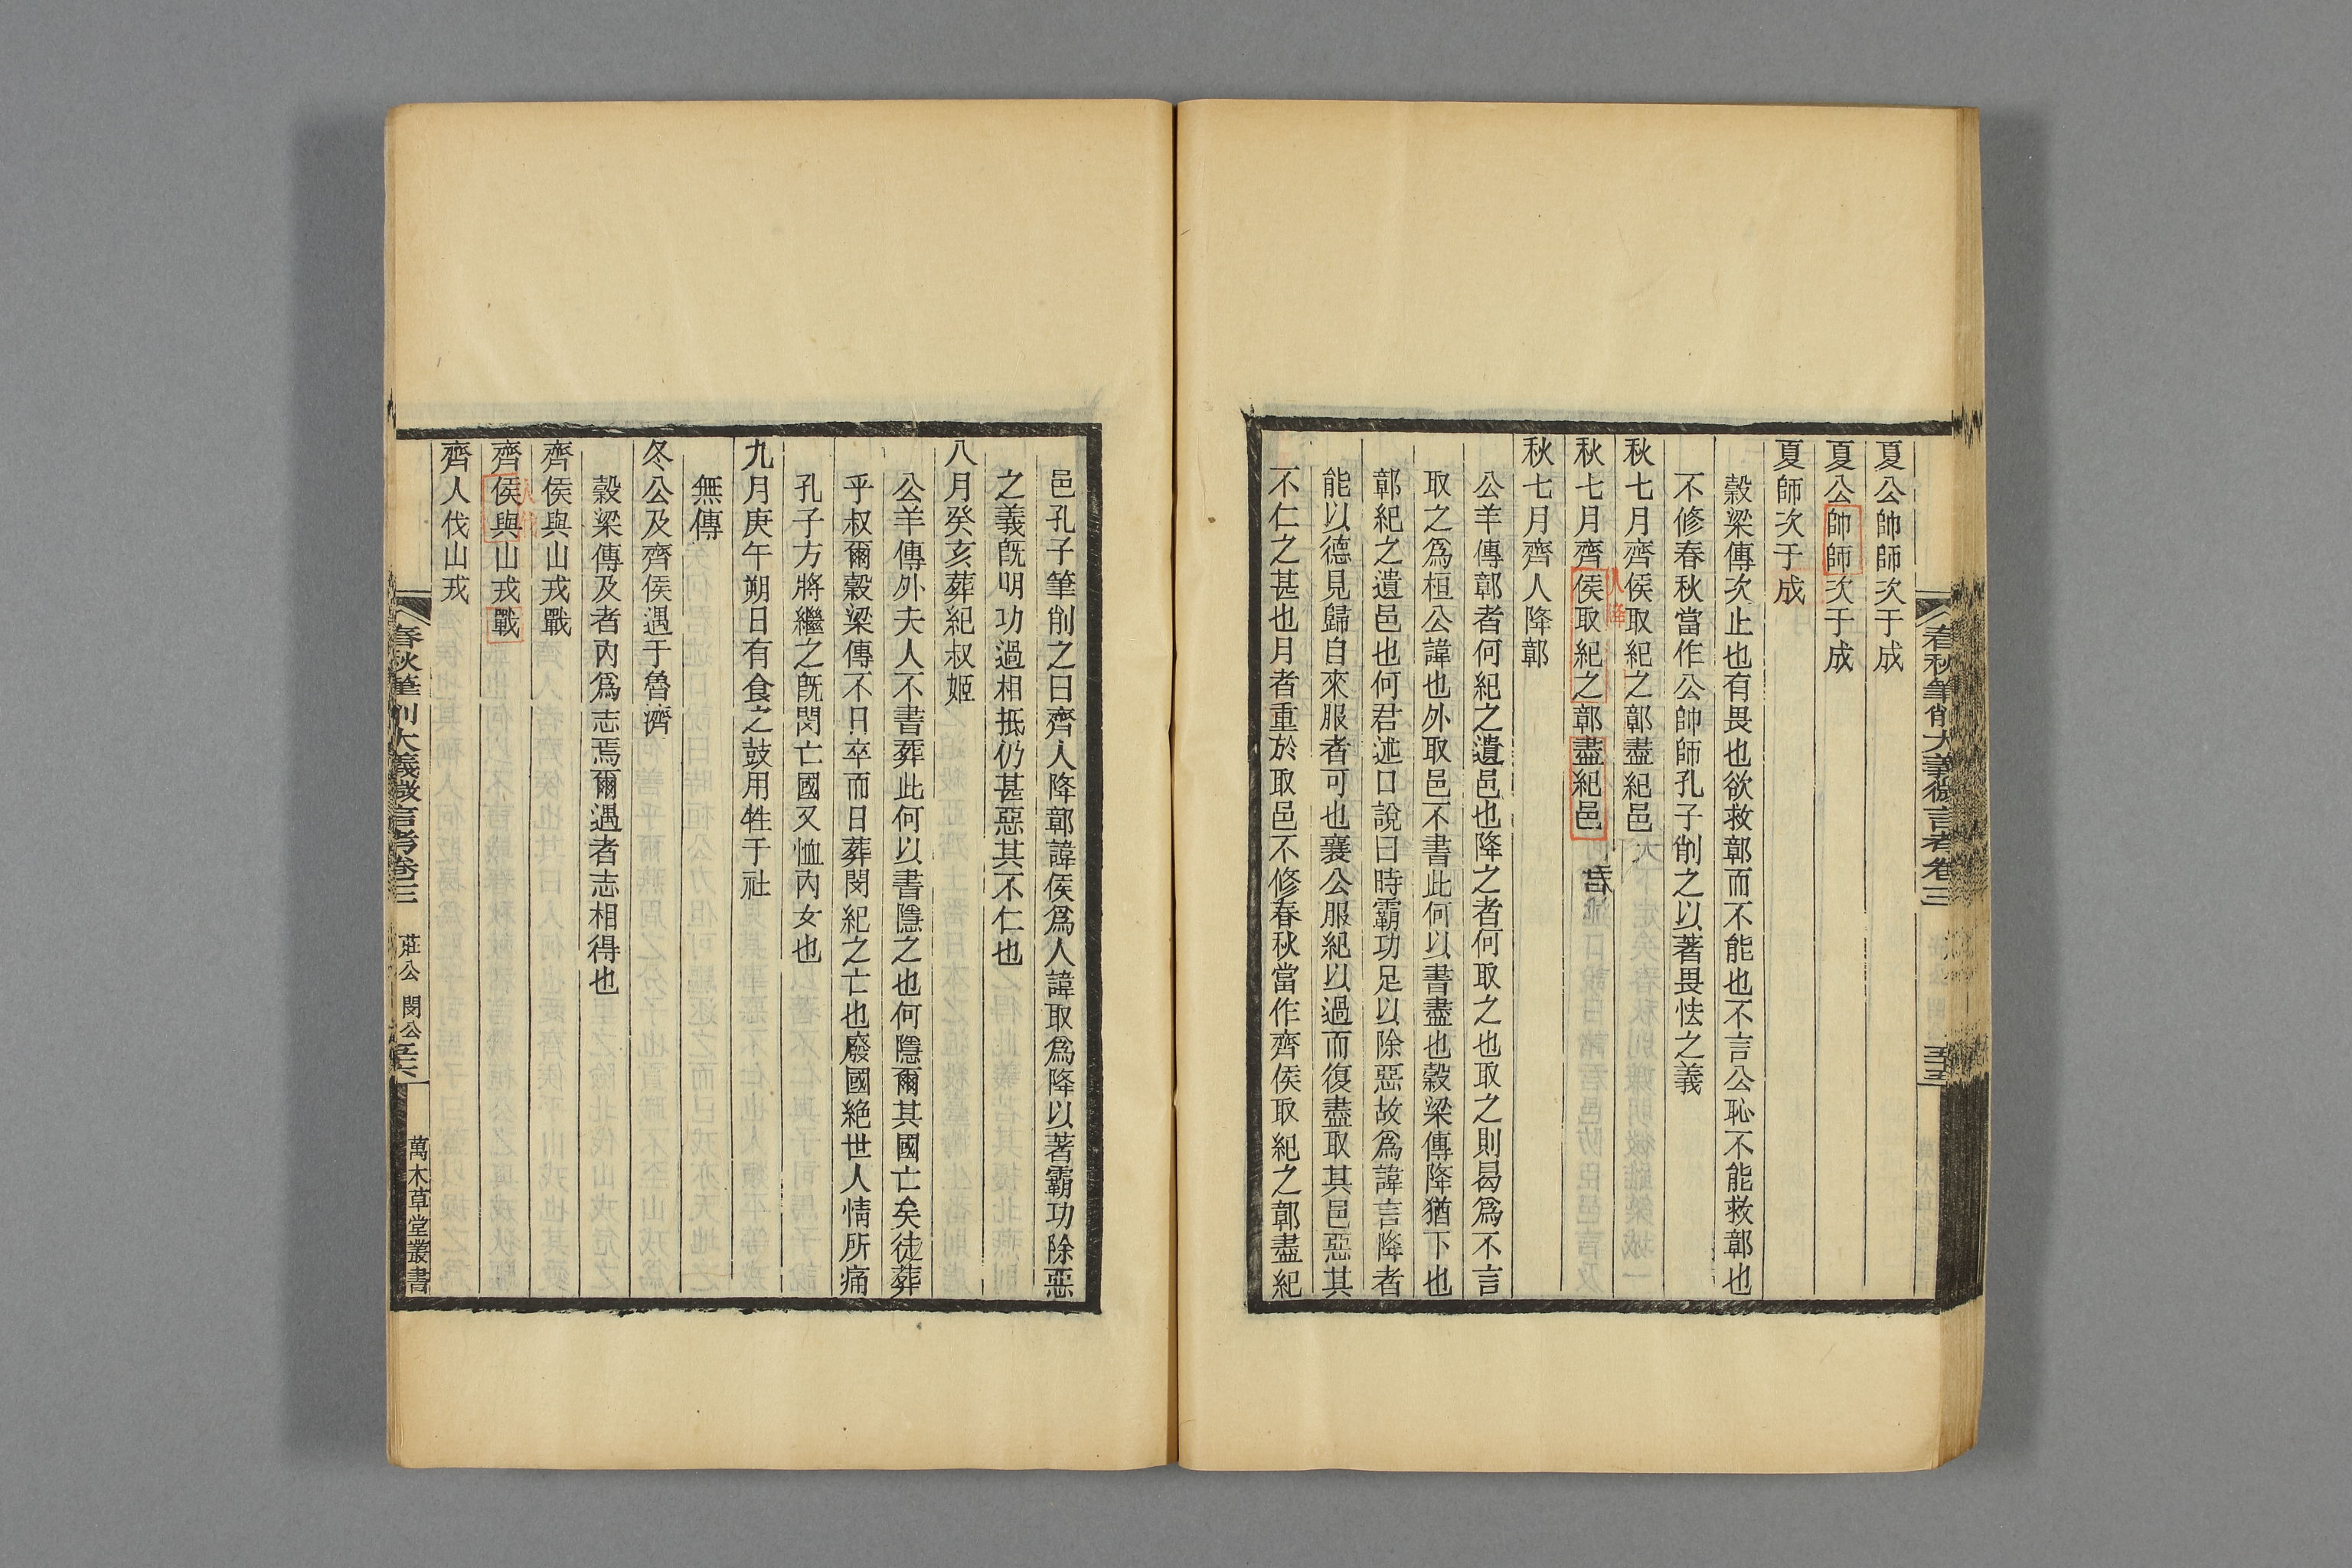 春秋筆削大義微言考卷三
夏公帥師次于成
夏公帥師次于成
夏師次于成
穀梁傳次止也有畏也欲救鄣而不能也不言公恥不能救鄣也
不修春秋當作公帥師孔子削之以著畏怯之義
秋七月齊侯取紀之鄣盡紀邑
人降
秋七月齊侯取紀之鄣盡紀邑
秋七月齊人降鄣
公羊傳鄣者何紀之遺邑也降之者何取之也取之則曷爲不言
取之爲桓公諱也外取邑不書此何以書盡也穀梁傳降猶下也
鄣紀之遺邑也何君述口說曰時霸功足以除惡故爲諱言降者
能以德見歸自來服者可也襄公服紀以過而復盡取其邑惡其
不仁之甚也月者重於取邑不修春秋當作齊侯取紀之鄣盡紀
邑孔子筆削之曰齊人降鄣諱侯爲人諱取爲降以著霸功除惡
之義旣明功過相抵仍甚惡其不仁也
八月癸亥葬紀叔姬
公羊傳外夫人不書葬此何以書隱之也何隱爾其國亡矣徒葬
乎叔爾穀梁傳不日卒而日葬閔紀之亡也廢國絕世人情所痛
孔子方將繼之旣閔亡國又恤內女也
九月庚午朔日有食之鼓用牲于社
無傳
冬公及齊侯遇于魯濟
穀梁傳及者內爲志焉爾遇者志相得也
齊侯與山戎戰
人伐
齊侯與山戎戰
齊人伐山戎
春秋筆削大義微言考卷三
莊公 閔公
萬木草堂叢書